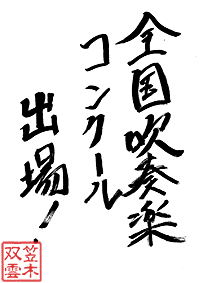 全国吹奏楽
コンクール
出場！
笠木
双雲